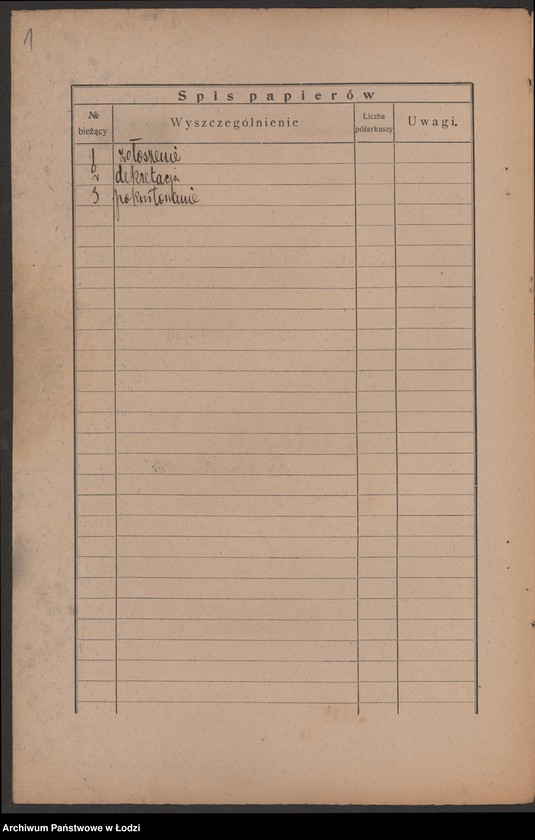 1
Spis papierów
№ bieżący Wyszczególnienie Liczba półarkuszy Uwagi.
1 zgłoszenie
2 dekretacja
3 pokwitowanie
Archiwum Państwowe w Łodzi